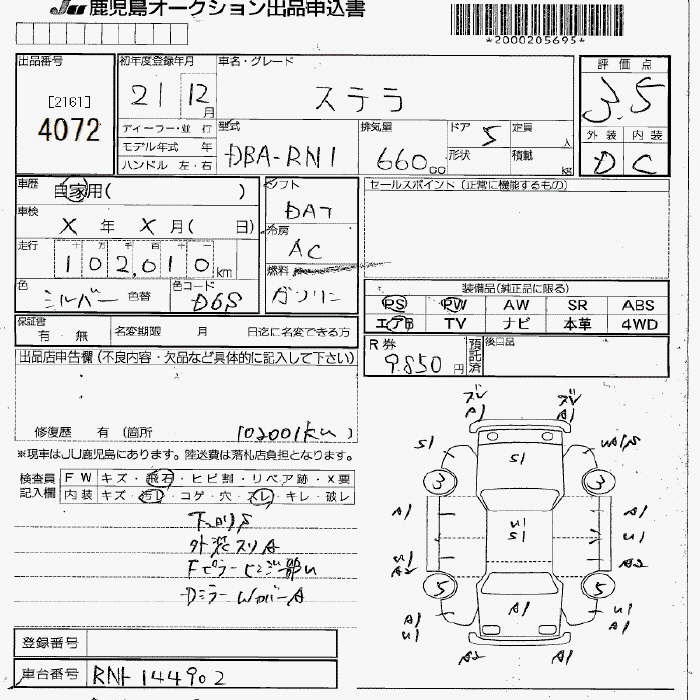 JU 鹿児島オークション出品申込書
*2000205695*
出品番号
[2161]
4072
初年度登録年月
21 12 月
車名・グレード
ステラ
評価点
3.5
外装 内装
D C
ディーラー・並行
モデル年式 年
ハンドル 左・右
型式
DBA-RN1
排気量
660 cc
ドア 5
形状
定員 人
積載 kg
車歴
自家用( )
車検
X 年 X 月( 日)
走行
十 万 千 百 十 一
102,010 km
色
シルバー 色替
色コード
D6S
シフト
DAT
冷房
AC
燃料
ガソリン
セールスポイント (正常に機能するもの)
装備品(純正品に限る)
PS PW AW SR ABS
エアB TV ナビ 本革 4WD
保証書
有・無
名変期限 月 日迄に名変できる方
R券
9850 円
預託済
後日品
出品店申告欄 (不良内容・欠品など具体的に記入して下さい)
修復歴 有 (箇所 102001km )
※現車はJU鹿児島にあります。陸送費は落札店負担となります。
検査員記入欄
FW キズ・飛石・ヒビ割・リペア跡・X要
内装 キズ・汚れ・コゲ・穴・スレ・キレ・破レ
下回りS
外装スリA
Dミラー WカバーA
ズレ A1
ズレ A1
S1
S1
3
3
A1
A1
U1
S1
U1
U1
A2
A2
5
5
A1
A1
U1
U1
A1
A2
A1
登録番号
車台番号 RN1-144902